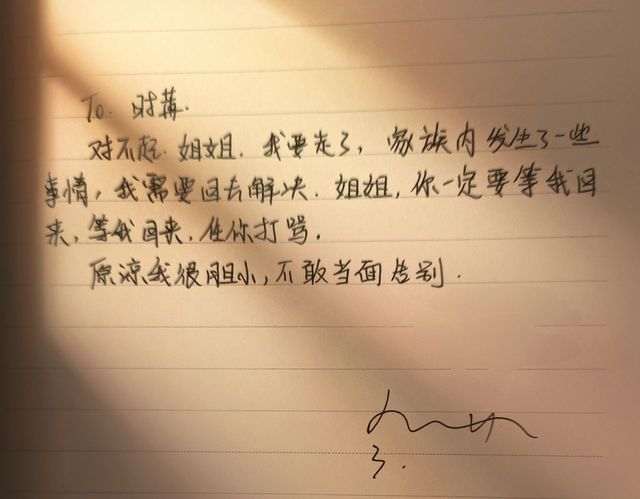 To. 时苒.
对不起. 姐姐. 我要走了, 家族内发生了一些
事情, 我需要回去解决. 姐姐, 你一定要等我回
来, 等我回来, 任你打骂.
原谅我很胆小, 不敢当面告别.
3.